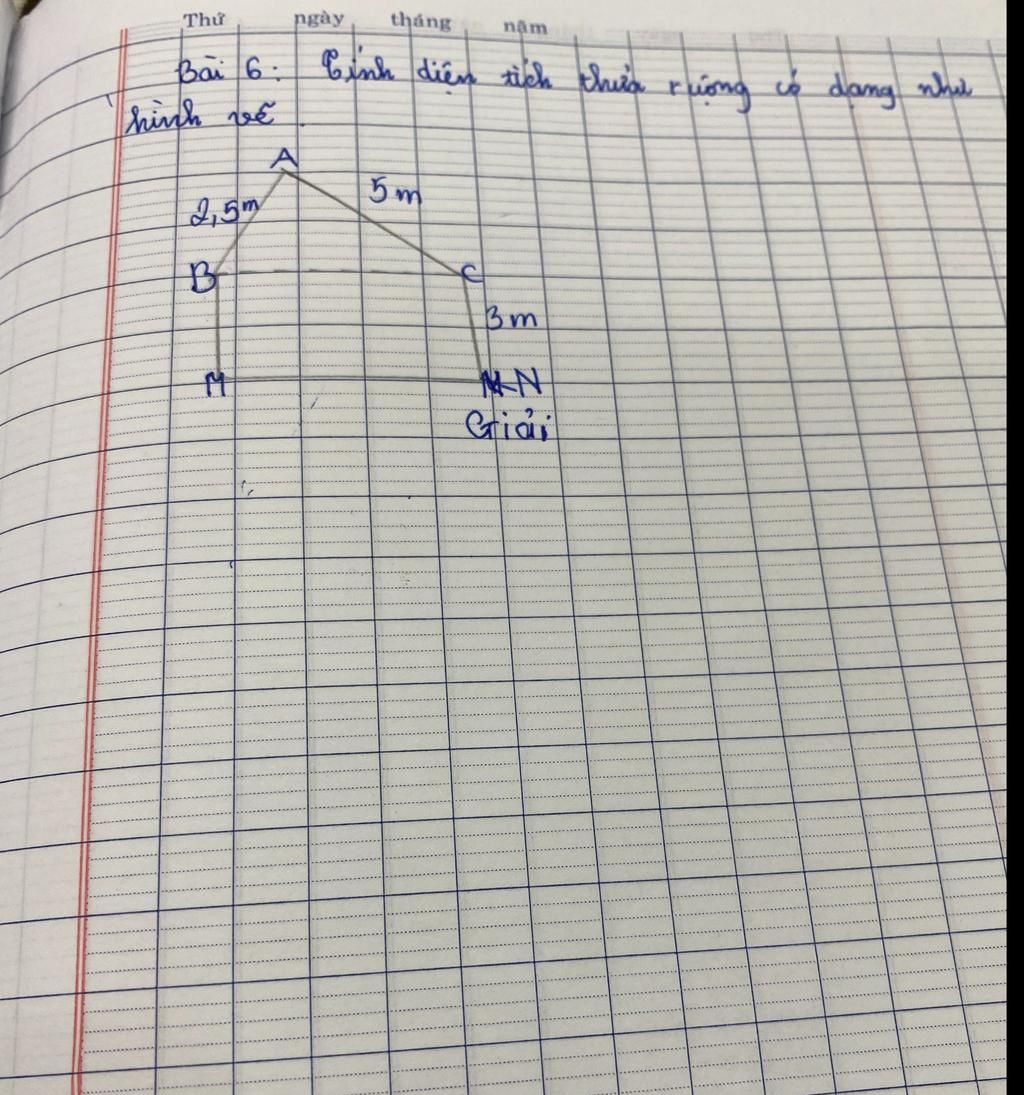 Thứ ngày tháng năm
Bài 6: Tính diện tích thửa ruộng có dạng như
hình vẽ
A
5 m
2,5m
B
C
3 m
M
N
Giải